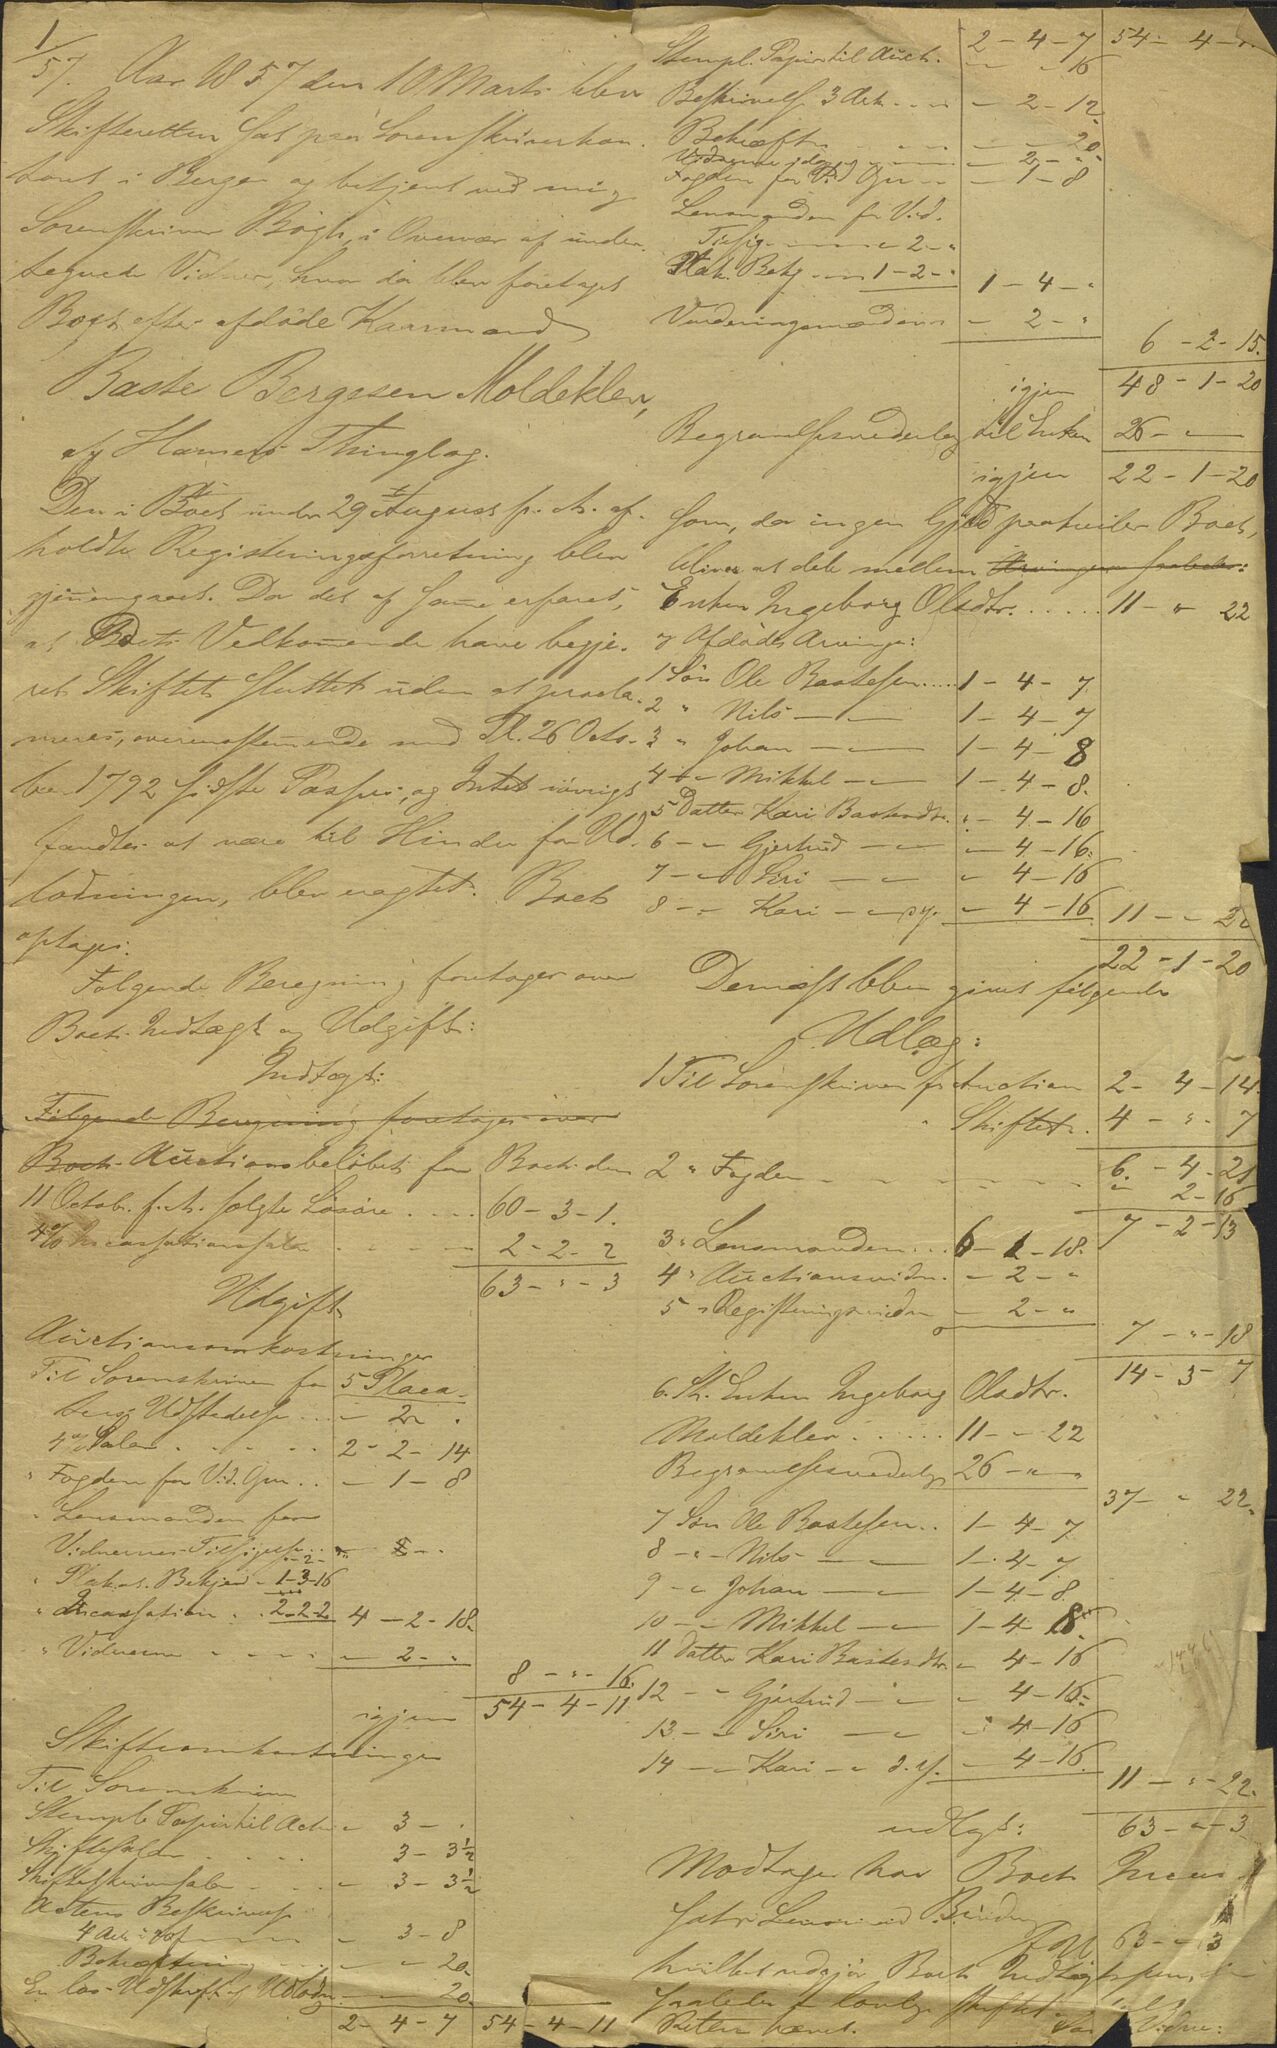 1/57. Aar 1857 den 10 Marts blev
Skifteretten sat paa Sorenskriverkon-
toret i Bergen og betjent ved mig
Sorenskriver Bøgh, i Overvær af under-
tegnede Vidner, hvor da blev foretaget
Boet efter afdøde Kaarmand
Baste Bergesen Moldeklev,
af Hamers Thinglag.
Den i Boet under 29 August f. A. af-
holdte Registeringsforretning blev
gjennemgaaet. Da det af samme erfares,
at Boets Vedkommende have begje-
ret Skiftet sluttet uden at procla-
meres, overensstemmende med Pl. 26 Octo-
ber 1792 sidste Passus, og Intet iøvrigt
fandtes at være til Hinder for Ud-
lodningen, blev eragtet: Boet
optages.
Følgende Beregning foretages over
Boets Indtægt og Udgift:
Indtægt:
Følgende Beregning foretages over
Boets Auctionsbeløbet for Boets den
11 Octob. f. A. solgte Løsøre .... 60 - 3 - 1.
4% Incassationssalær .... 2 - 2 - 2
63 - " - 3
Udgift
Auctionsomkostninger
Til Sorenskriver for 5 Placa-
ters Udstedelse ... - 2 .
4% Salær .... 2 - 2 - 14
" Fogden for V.d. Gm .. - 1 - 8
" Lensmanden for
Vidnernes Tilsigelse - 2 -
" Plakat. Bekjend - 1-3-16
" Incassation .. 2-2-2 4 - 2 - 18.
" Vidnerne .... - 2 - "
8 - " - 16.
igjen 54 - 4 - 11
Skifteomkostninger
Til Sorenskriver
Stemplt Papir til Acten - 3 - .
Skiftesalær .... 3 - 3½
Skifteskriversalær ... - 3 - 3½
Actens Beskrivelse
4 Ark - 3 - 8
Bekræftning ... - " 20.
En lov. Udskrift af Udlodn. - - 20.
2 - 4 - 7 54 - 4 - 11
2 - 4 - 7 54 - 4 -
Stempl. Papir til Auct. - " 16
Beskrivels 3 Ark .... - 2 - 12.
Bekræftn .... - 20.
Vidnerne - 2 - "
Fogden for V.d Gm .. - 1 - 8
Lensmanden for V.d.
Tilsig. .... 2 - "
Plak. Bekj .. 1 - 2 - " 1 - 4 - "
Vurderingsmændene - 2 - "
6 - 2 - 15.
igjen 48 - 1 - 20
Begravelsesvederlag til Enken 26 - "
igjen 22 - 1 - 20
som, da ingen Gjæld paahviler Boet,
bliver at dele mellem Arvingerne saaledes:
Enken Ingeborg Olsdtr. ..... 11 - " 22
og Afdødes Arvinger:
1 Søn Ole Bastesen .... 1 - 4 - 7.
2 " Nils - " - 1 - 4 - 7
3 " Johan - " - 1 - 4 - 8
4 - " Mikkel - " - 1 - 4 - 8.
5 Datter Kari Bastesdtr. " - 4 - 16
6 - " Gjertrud - " " - 4 - 16.
7 - " Siri - " " - 4 - 16
8 - " Kari - " d.y. " - 4 - 16 11 - " 20
22 - 1 - 20
Dernæst blev givet følgende
Udlæg:
1 Til Sorenskriver for Auction 2 - 4 - 14.
" Skiftet. 4 - " - 7
6. - 4 - 21
2 " Fogden .... " 2 - 16
7 - 2 - 13
3 " Lensmanden ... 6 - 1 - 18.
4 " Auctionsvidn. - 2 - "
5 " Registeringsvidn - 2 - "
7 - " - 18
14 - 3 - 7
6. Enken Ingeborg Olsdtr.
Moldeklev ..... 11 - " 22
Begravelsesvederlag 26 - "
37 - " 22.
7 Søn Ole Bastesen .. 1 - 4 - 7
8 - " - Nils - " 1 - 4 - 7
9 - " Johan - " 1 - 4 - 8.
10 - " Mikkel - " 1 - 4 - 8.
11 Datter Kari Bastesdtr. " 4 - 16
12 - " Gjertrud - " " 4 - 16.
13 - " Siri - " " 4 - 16
14 - " Kari - " d.y. - 4 - 16 11 - " - 22.
udlagt: 63 - " - 3
Modtager har Boets Incas-
sator Lensmand
63 - " 3
hvilket udgjør Boets Indtægtssum,
saaledes er lovlig skiftet
Retten hævet. Vidne: